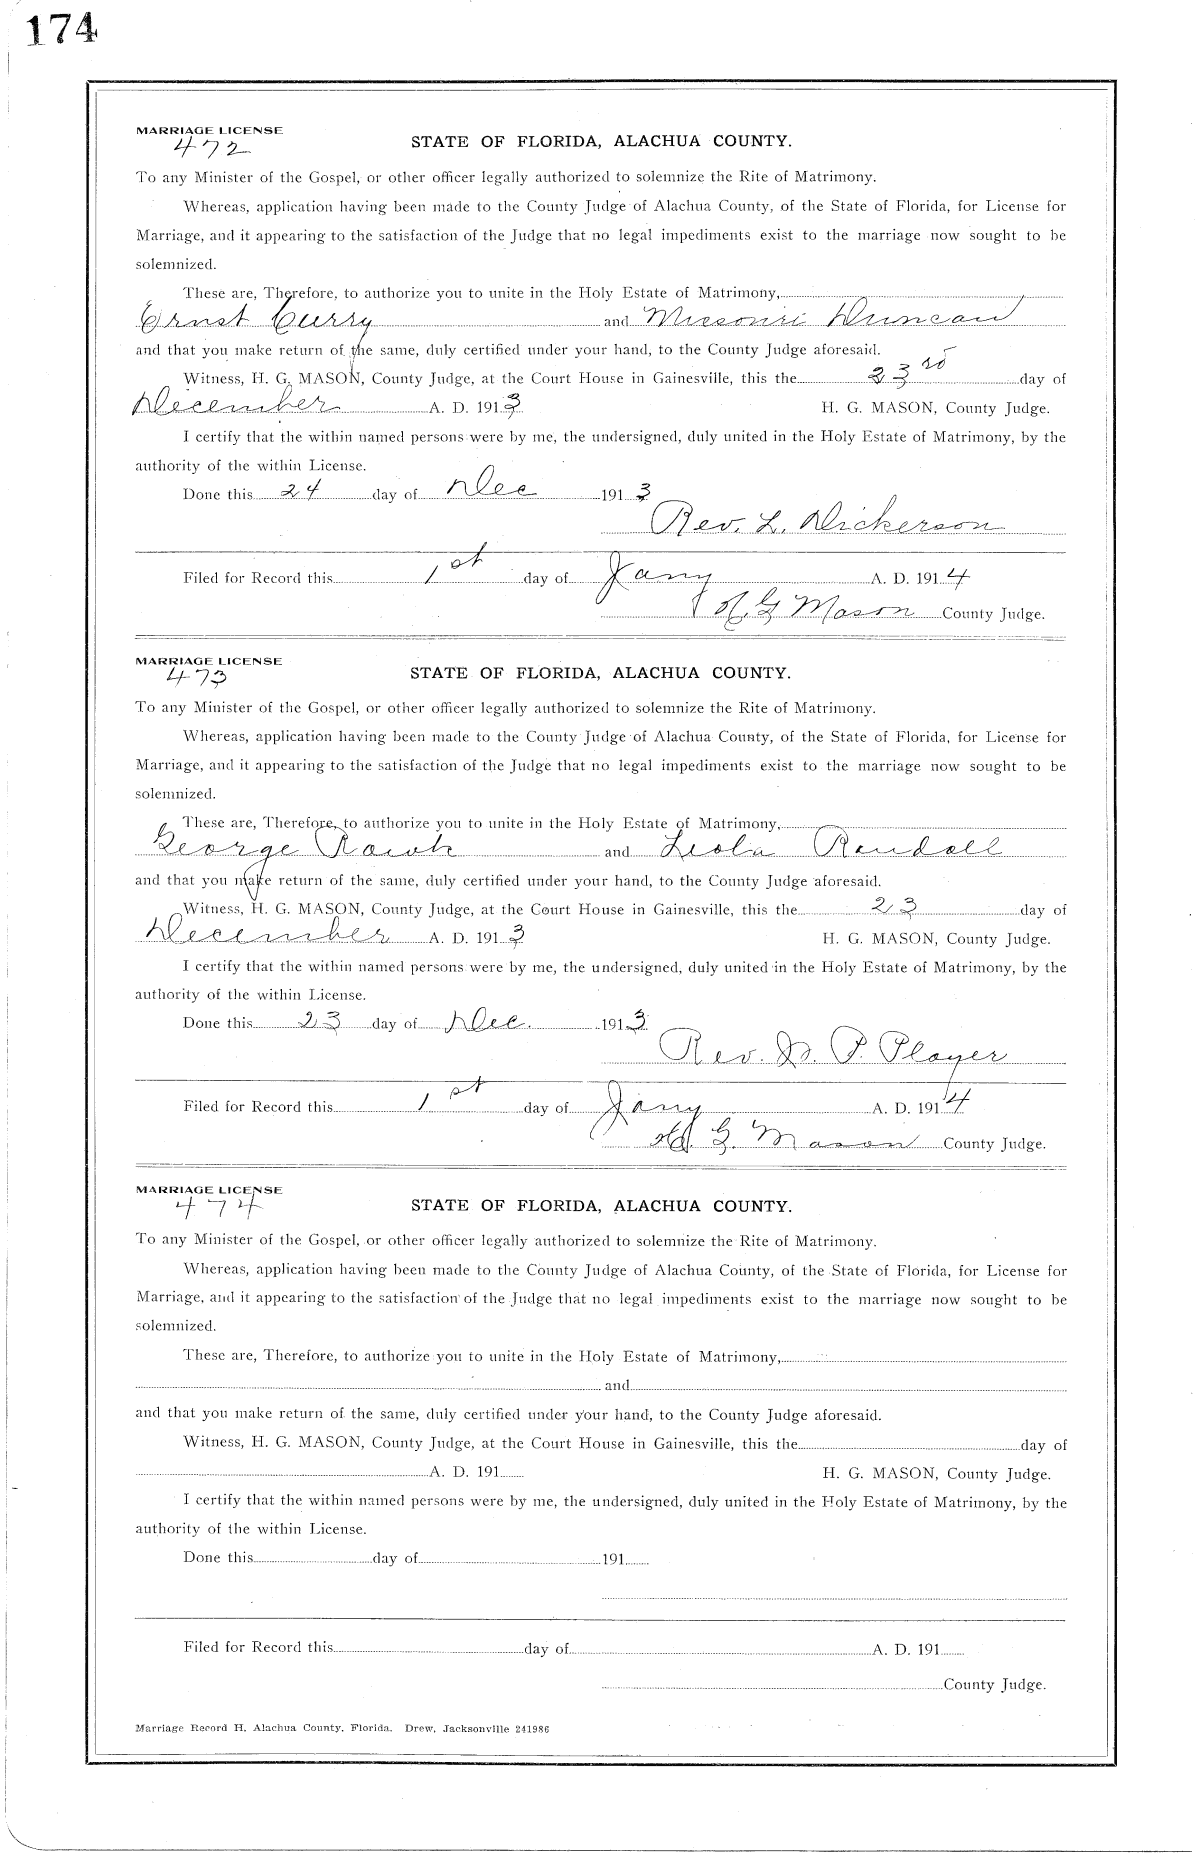 174
MARRIAGE LICENSE
472
STATE OF FLORIDA, ALACHUA COUNTY.
To any Minister of the Gospel, or other officer legally authorized to solemnize the Rite of Matrimony.
Whereas, application having been made to the County Judge of Alachua County, of the State of Florida, for License for
Marriage, and it appearing to the satisfaction of the Judge that no legal impediments exist to the marriage now sought to be
solemnized.
These are, Therefore, to authorize you to unite in the Holy Estate of Matrimony,
Ernst Curry and Missouri Duncan
and that you make return of the same, duly certified under your hand, to the County Judge aforesaid.
Witness, H. G. MASON, County Judge, at the Court House in Gainesville, this the 23rd day of
December A. D. 1913 H. G. MASON, County Judge.
I certify that the within named persons were by me, the undersigned, duly united in the Holy Estate of Matrimony, by the
authority of the within License.
Done this 24 day of Dec 1913
Rev. L. Dickerson
Filed for Record this 1st day of Jany A. D. 1914
H. G. Mason County Judge.
MARRIAGE LICENSE
473
STATE OF FLORIDA, ALACHUA COUNTY.
To any Minister of the Gospel, or other officer legally authorized to solemnize the Rite of Matrimony.
Whereas, application having been made to the County Judge of Alachua County, of the State of Florida, for License for
Marriage, and it appearing to the satisfaction of the Judge that no legal impediments exist to the marriage now sought to be
solemnized.
These are, Therefore, to authorize you to unite in the Holy Estate of Matrimony,
George and Leola Randall
and that you make return of the same, duly certified under your hand, to the County Judge aforesaid.
Witness, H. G. MASON, County Judge, at the Court House in Gainesville, this the 23 day of
December A. D. 1913 H. G. MASON, County Judge.
I certify that the within named persons were by me, the undersigned, duly united in the Holy Estate of Matrimony, by the
authority of the within License.
Done this 23 day of Dec. 1913
Rev. P. Player
Filed for Record this 1st day of Jany A. D. 1914
H. G. Mason County Judge.
MARRIAGE LICENSE
474
STATE OF FLORIDA, ALACHUA COUNTY.
To any Minister of the Gospel, or other officer legally authorized to solemnize the Rite of Matrimony.
Whereas, application having been made to the County Judge of Alachua County, of the State of Florida, for License for
Marriage, and it appearing to the satisfaction of the Judge that no legal impediments exist to the marriage now sought to be
solemnized.
These are, Therefore, to authorize you to unite in the Holy Estate of Matrimony,
and
and that you make return of the same, duly certified under your hand, to the County Judge aforesaid.
Witness, H. G. MASON, County Judge, at the Court House in Gainesville, this the day of
A. D. 191 H. G. MASON, County Judge.
I certify that the within named persons were by me, the undersigned, duly united in the Holy Estate of Matrimony, by the
authority of the within License.
Done this day of 191
Filed for Record this day of A. D. 191
County Judge.
Marriage Record H, Alachua County, Florida. Drew, Jacksonville 241986